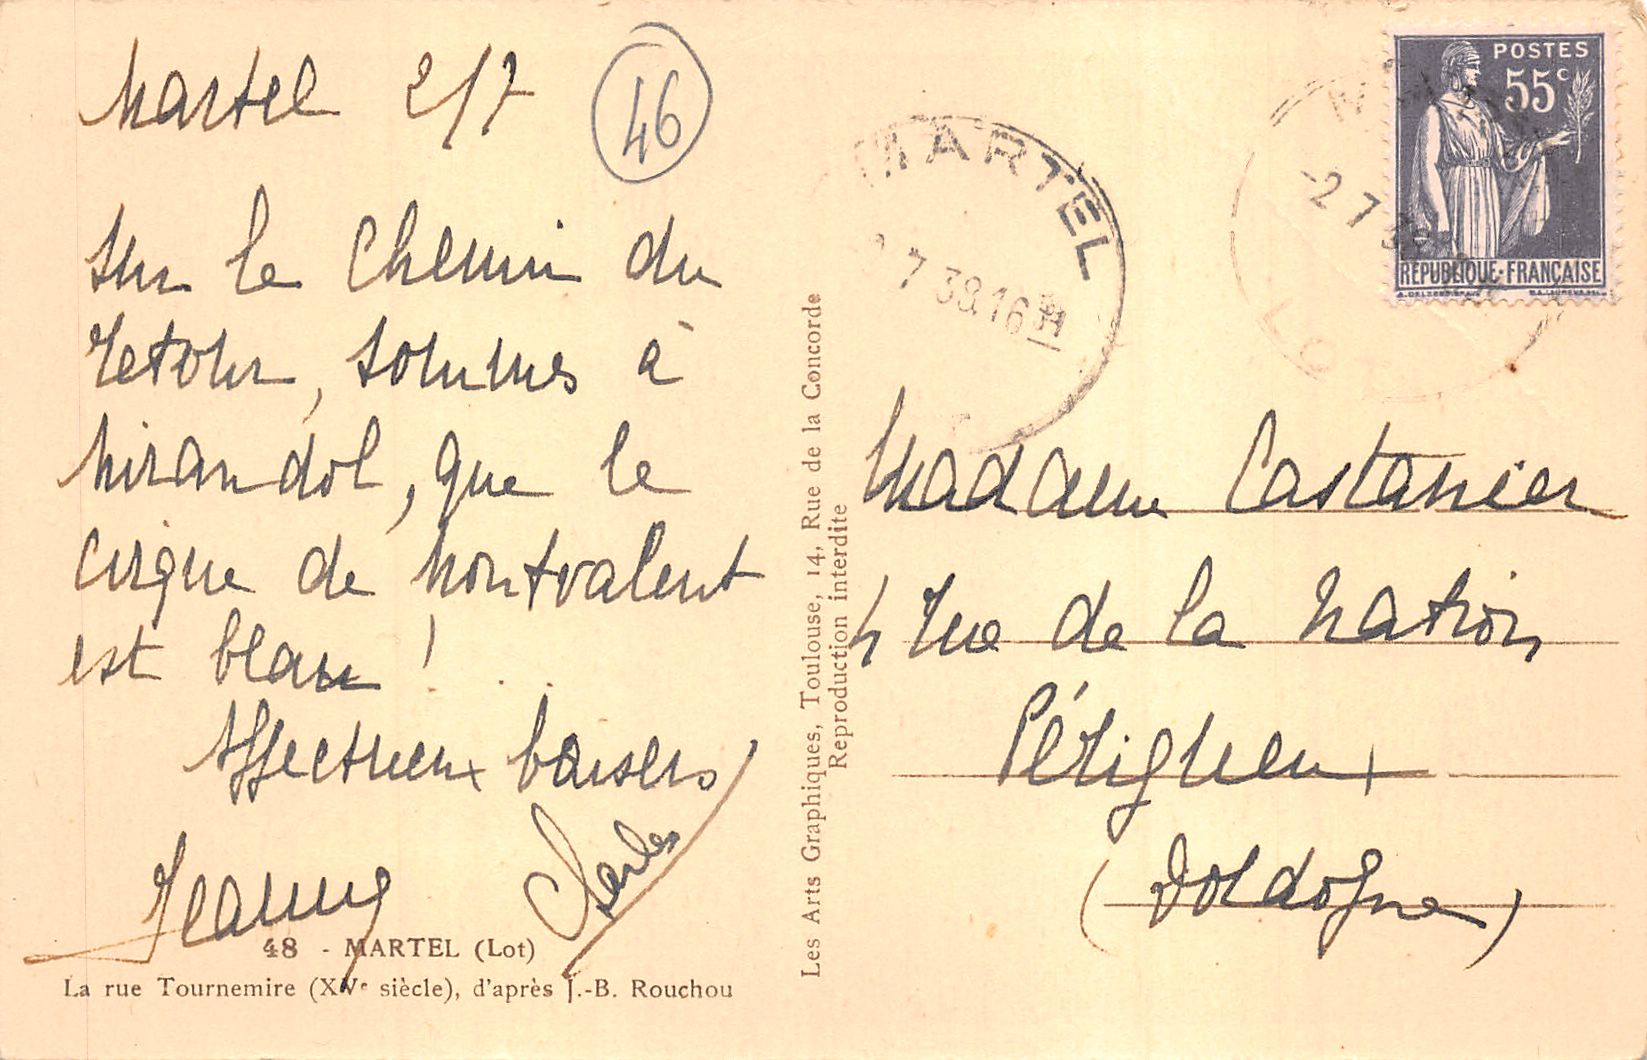 Martel 2/7
46
Sur le chemin du
retour, sommes à
Mirandol, que le
cirque de Montvalent
est beau !
Affectueux baisers
Jeanny Charles
48 - MARTEL (Lot)
La rue Tournemire (XVe siècle), d'après J.-B. Rouchou
Les Arts Graphiques, Toulouse, 14, Rue de la Concorde
Reproduction interdite
MARTEL
7 38 16 H
-2 7 38
LO
POSTES
55c
RÉPUBLIQUE-FRANÇAISE
Madame Castanier
4 rue de la Nation
Périgueux
(Dordogne)